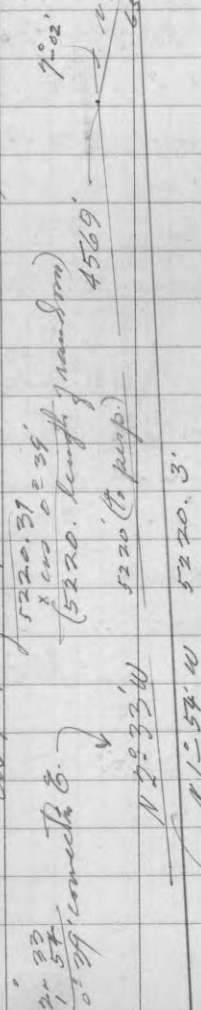 2° 33
1 54
0° 39' correction E.
5220.31
x cos 0° = 39'
(5220. length of random)
4569'
7° 02'
N.
5220' (to perp.)
N 2° 33' W
N 1° 54' W 5220.3'